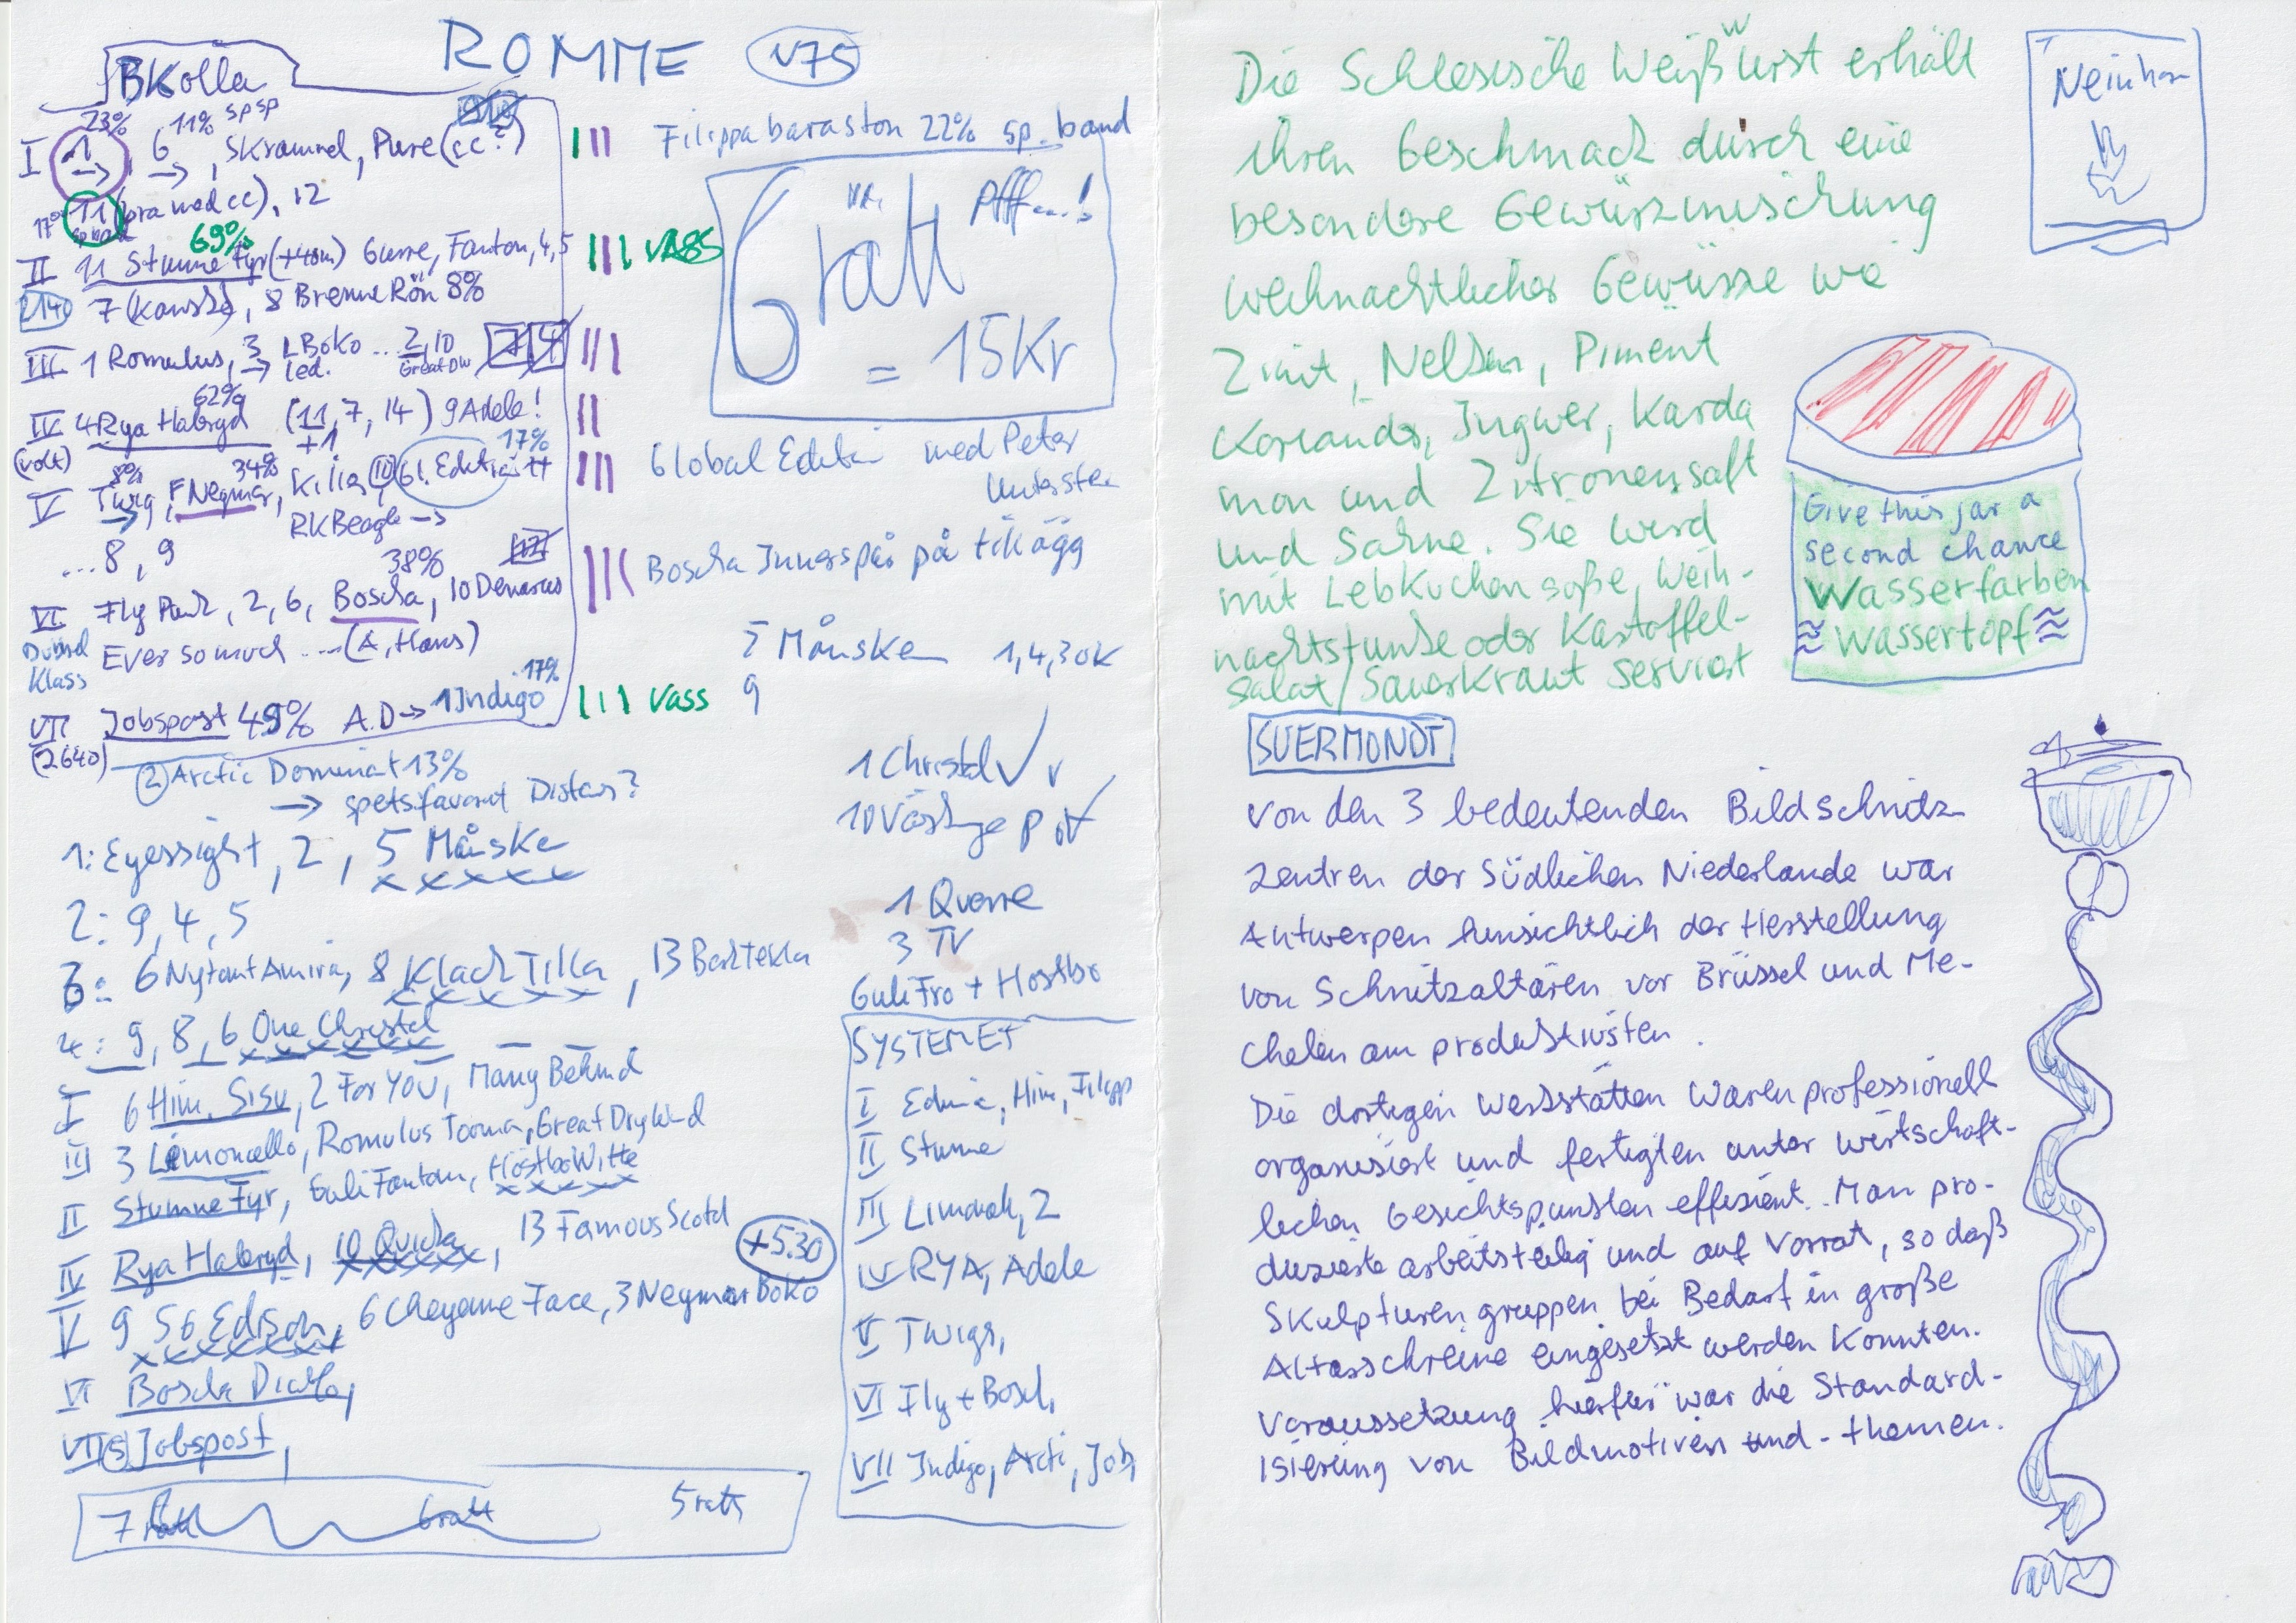 ROMME V75
BKolla
23% 11% sp sp
I 1 → , 6 → , Skrammel, Pure (cc?)
17% 11 (bra med cc), 12
sp band
69%
II 11 Stumne Fyr (+40m) Gurre, Fanton, 4,5
2140 7 (Kanske), 8 Brenne Rön 8%
III 1 Romulus, 3 → LBoko ... 2, 10
led. Great DW
62%
IV 4 Rya Habryd (11, 7, 14) 9 Adele!
(volt) +1
8% 34% 17%
V Twig →, F Neymar, Kilia, (10) Gl. Edkti
RK Beagle →
... 8, 9
38%
VI Fly Park, 2, 6, Boscha, 10 Denarus
Dubbel Klass Ever so much .... (A, Hans)
17%
VII Jobspost 49% A.D → 1 Indigo
(2640)
(2) Arctic Dominat 13%
→ spetsfavorit Distans?
III
III VASS
III
II
III
III
III Vass
Filippa baraston 22% sp. band
6 rätt Pfff...!
= 15 Kr
Global Edkti med Peter
Untersteu
Boscha Innerspår på tillägg
5 Månske 1,4,30K
9
1 Christel ✓ v
10 Västinge p
1 Querre
3 TV
Guli Fro + Hostbo
1: Eyessight, 2, 5 Månske
x x x x x
2: 9, 4, 5
3: 6 Nytomt Amira, 8 Klack Tilla, 13 Backtekla
x x x x x
4: 9, 8, 6 One Christel
x x x x x x
I 6 Him, Sisu, 2 For You, Many Behind
III 3 Limoncello, Romulus Tooma, Great Dry Wind
II Stumne Fyr, Guli Fantom, Höstbo Witte
x x x x x
IV Rya Habryd, 10 Quicka, 13 Famous Scotd
+5.30
V 9 SG Edison, 6 Cheyenne Face, 3 Neymar Boko
x x x x x x x
VI Boscha Diablo,
VII (5) Jobspost,
7 rätt 6 rätt 5 rätt
SYSTEMET
I Edwia, Him, Filipp
II Stumne
III Limonch, 2
IV RYA, Adele
V Twigs,
VI Fly + Bosch,
VII Indigo, Arcti, Job,
Die Schlesische Weißwurst erhält
ihren Geschmack durch eine
besondere Gewürzmischung
weihnachtlicher Gewürze wie
Zimt, Nelken, Piment
Koriander, Ingwer, Karda
mon und Zitronensaft
und Sahne. Sie wird
mit Lebkuchensoße, Weih-
nachtstunke oder Kartoffel-
salat/Sauerkraut serviert
Neinhorn
Give this jar a
second chance
Wasserfarben
≈ Wassertopf ≈
SUERMONDT
von den 3 bedeutenden Bildschnitz-
zentren der südlichen Niederlande war
Antwerpen hinsichtlich der Herstellung
von Schnitzaltären vor Brüssel und Me-
cheln am produktivsten.
Die dortigen Werkstätten waren professionell
organisiert und fertigten unter wirtschaft-
lichen Gesichtspunkten effizient. Man pro-
duzierte arbeitsteilig und auf Vorrat, so daß
Skulpturengruppen bei Bedarf in große
Altarschreine eingesetzt werden konnten.
Voraussetzung hierfür war die Standard-
isierung von Bildmotiven und -themen.